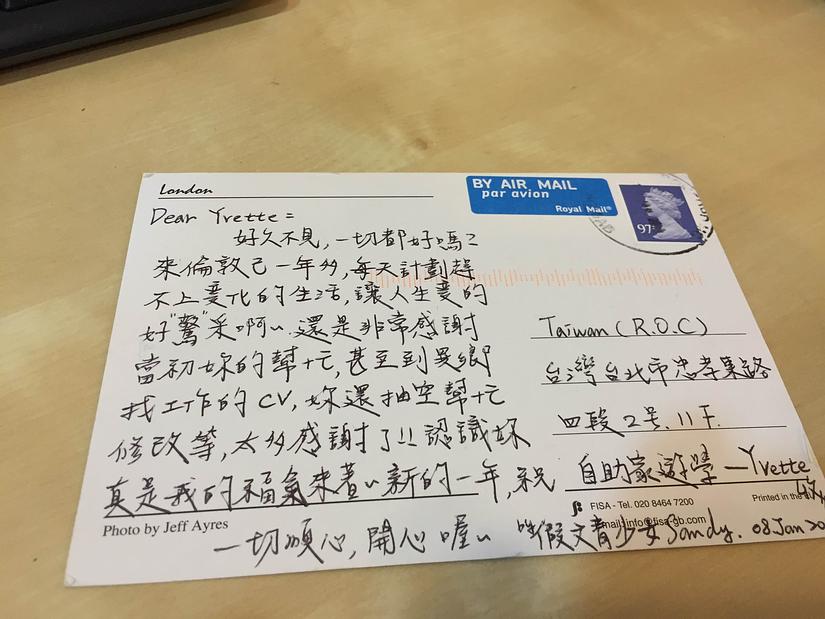 London
BY AIR MAIL
par avion
Royal Mail
97
Dear Yvette =
好久不見，一切都好嗎？
來倫敦已一年多，每天計劃趕
不上變化的生活，讓人生變的
好"驚"采啊~ 還是非常感謝
當初妳的幫忙，甚至到異鄉
找工作的CV，妳還抽空幫忙
修改等，太多感謝了!! 認識妳
真是我的福氣來著~ 新的一年，祝
一切順心，開心喔~
假文青少女 Sandy. 08 Jan 20
Taiwan (R.O.C)
台灣台北市忠孝東路
四段2号.11F.
自助家遊學 — Yvette
FISA - Tel. 020 8464 7200
Printed in the
email: info@fisa-gb.com
Photo by Jeff Ayres